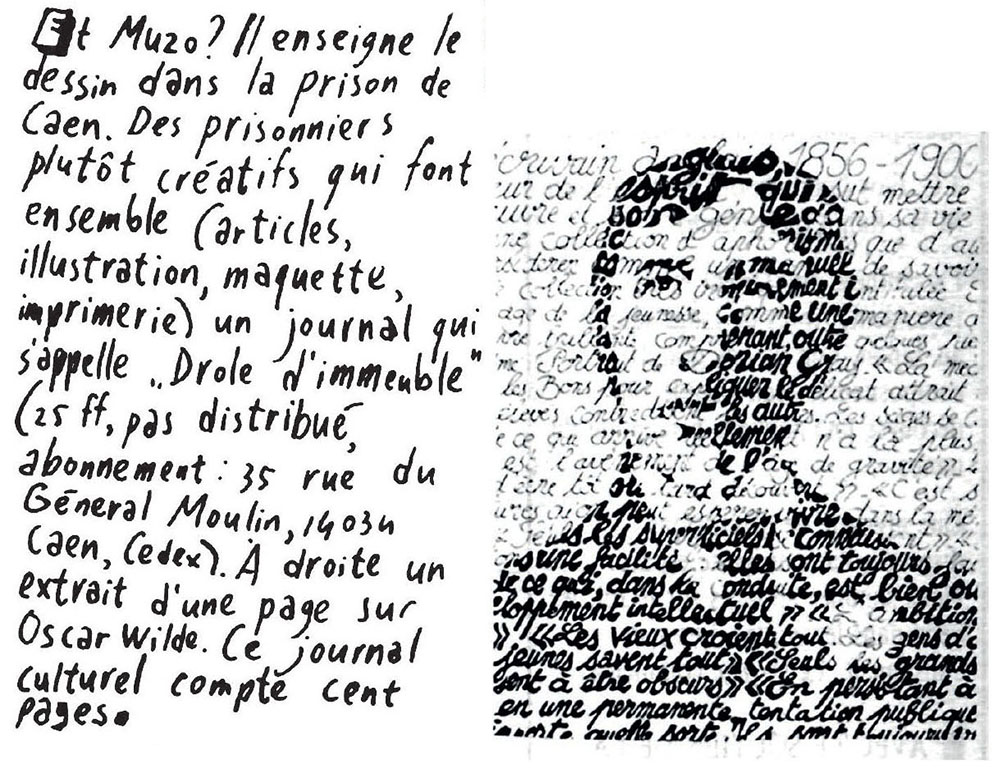 Et Muzo? Il enseigne le
dessin dans la prison de
Caen. Des prisonniers
plutôt créatifs qui font
ensemble (articles,
illustration, maquette,
imprimerie) un journal qui
s'appelle „Drole d'immeuble"
(25 ff, pas distribué,
abonnement : 35 rue du
Géneral Moulin, 14034
Caen, Cedex). À droite un
extrait d'une page sur
Oscar Wilde. Ce journal
culturel compte cent
pages.
écrivain anglais, 1856-1900
de l'esprit qui sut mettre
et son génie dans sa vie
collection d'aphorismes que d'au
comme un manuel de savoir
collection très intitulée
de la jeunesse, comme une manière
comprenant, outre
Portrait de Dorian Gray. «La
les Bons pour expliquer le délicat attrait
contredisent les autres. Les sages
ce qui arrive réellement n'a la plus
est l'avènement de l'âge de gravité» «
d'être tôt ou tard découvert ». «C'est
peut espérer vivre dans la mé
«Seuls les superficiels connaissent »«
une facilité elles sont toujours
de ce qui, dans la conduite, est bient ou
loppement intellectuel » «L'ambition
» «Les vieux croient tout les gens d'
jeunes savent tout» «Seuls les grands
sent à être obscurs» «En persistant à
en une permanente tentation publique
quelle sorte. Ils sont toujours